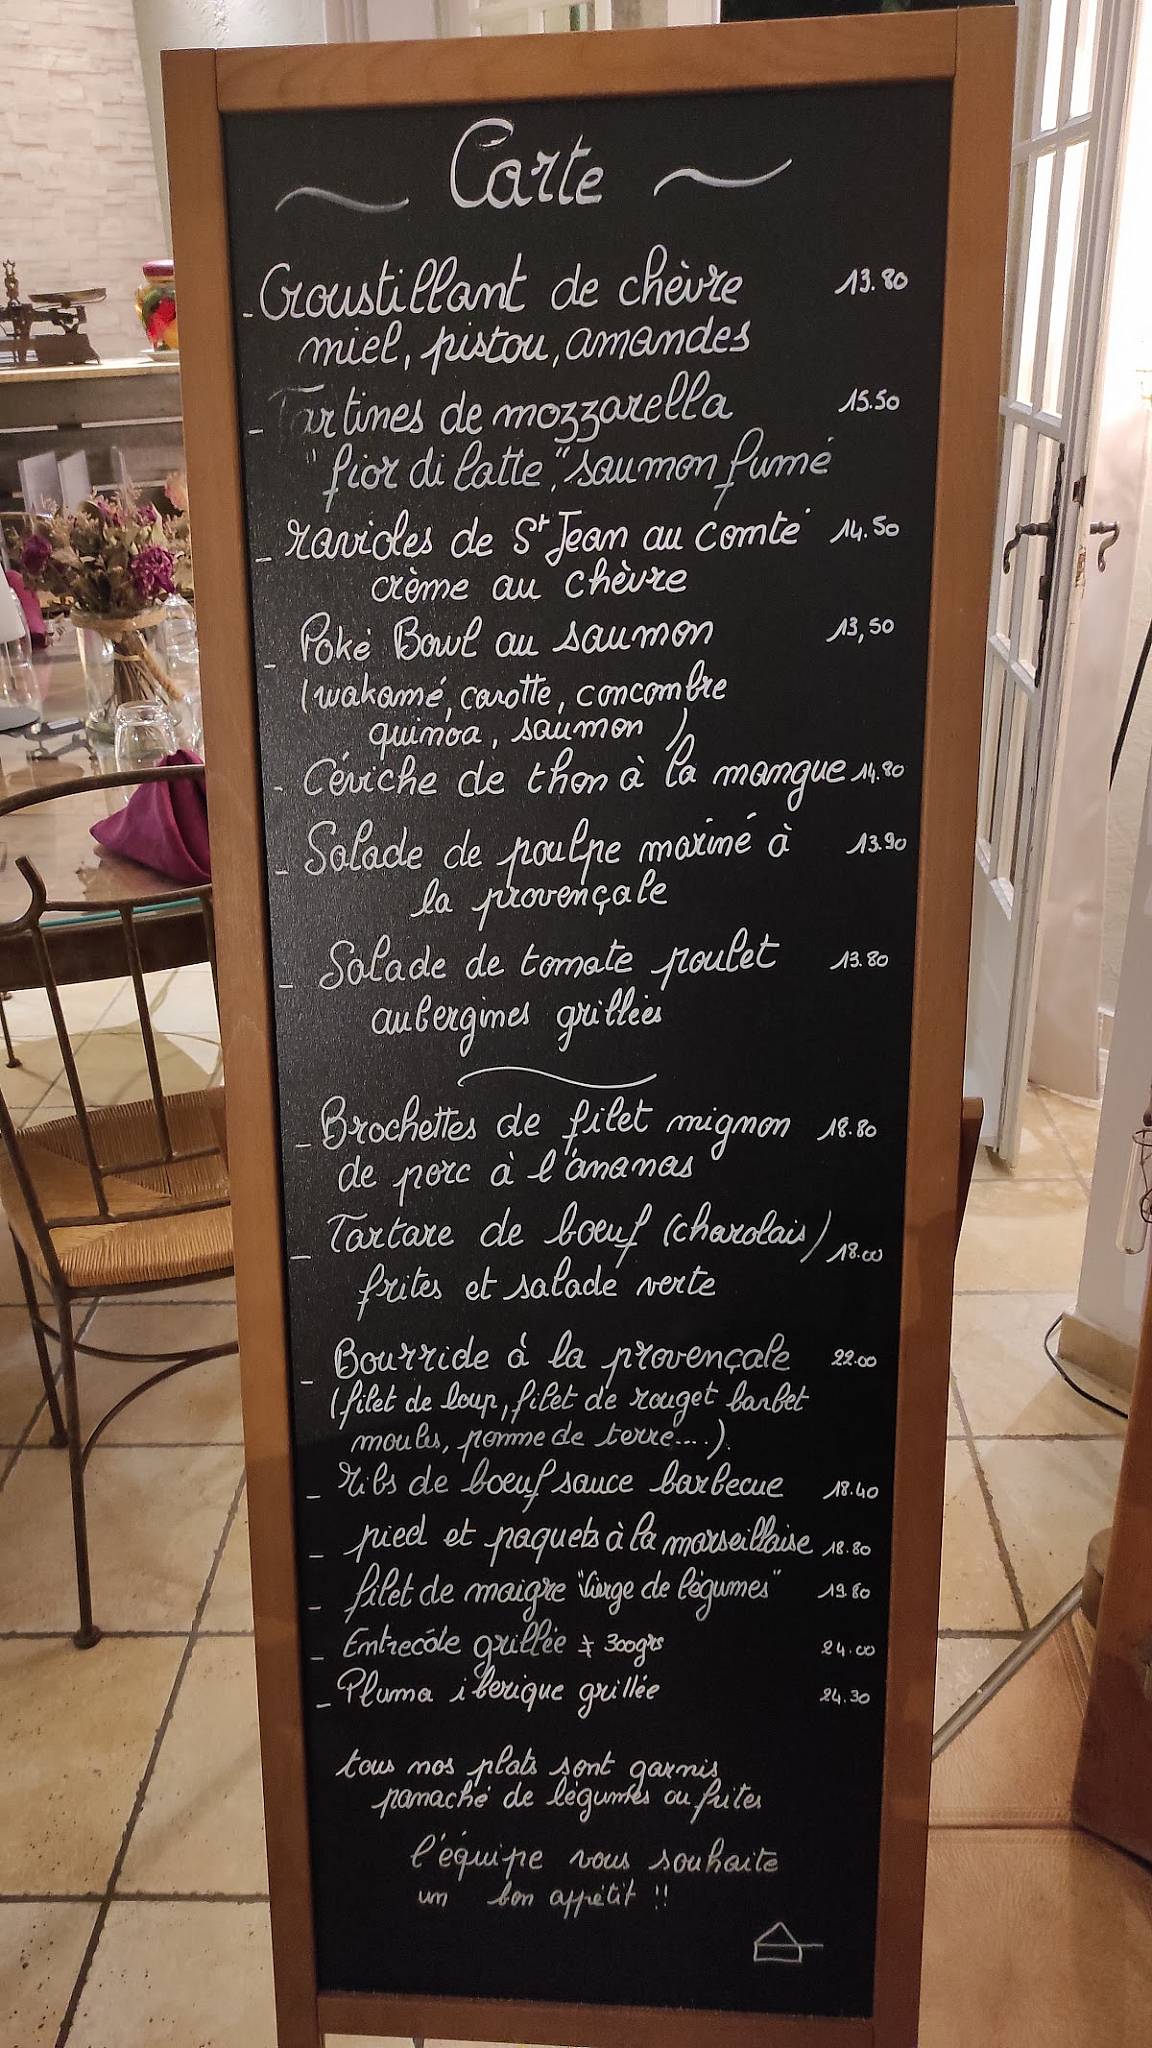 Carte
- Croustillant de chèvre 13.80
miel, pistou, amandes
- Tartines de mozzarella 15.50
"fior di latte," saumon fumé
- ravioles de St Jean au comté 14.50
crème au chèvre
- Poké Bowl au saumon 13,50
(wakamé, carotte, concombre
quinoa, saumon)
- Céviche de thon à la mangue 14.80
- Salade de poulpe mariné à 13.90
la provençale
- Salade de tomate poulet 13.80
aubergines grillées
- Brochettes de filet mignon 18.80
de porc à l'ananas
- Tartare de boeuf (charolais) 18.00
frites et salade verte
- Bourride à la provençale 22.00
(filet de loup, filet de rouget barbet
moules, pomme de terre....).
- ribs de boeuf sauce barbecue 18.40
- pied et paquets à la marseillaise 18.80
- filet de maigre "Vierge de légumes" 19.80
- Entrecôte grillée ± 300grs 24.00
- Pluma iberique grillée 24.30
tous nos plats sont garnis
panaché de légumes ou frites
l'équipe vous souhaite
un bon appétit !!